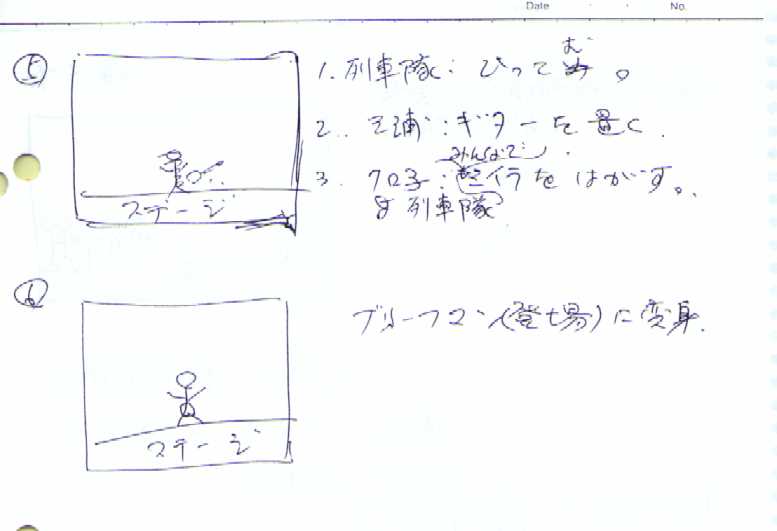 Date ・ ・ No.
⑤
1. 列車隊: ひってむ。
2. 三浦: ギターを置く.
みんなで
3. クロ子: イラをはがす。
& 列車隊
ステージ
⑥
ブリーフマン(登場)に変身.
ステージ